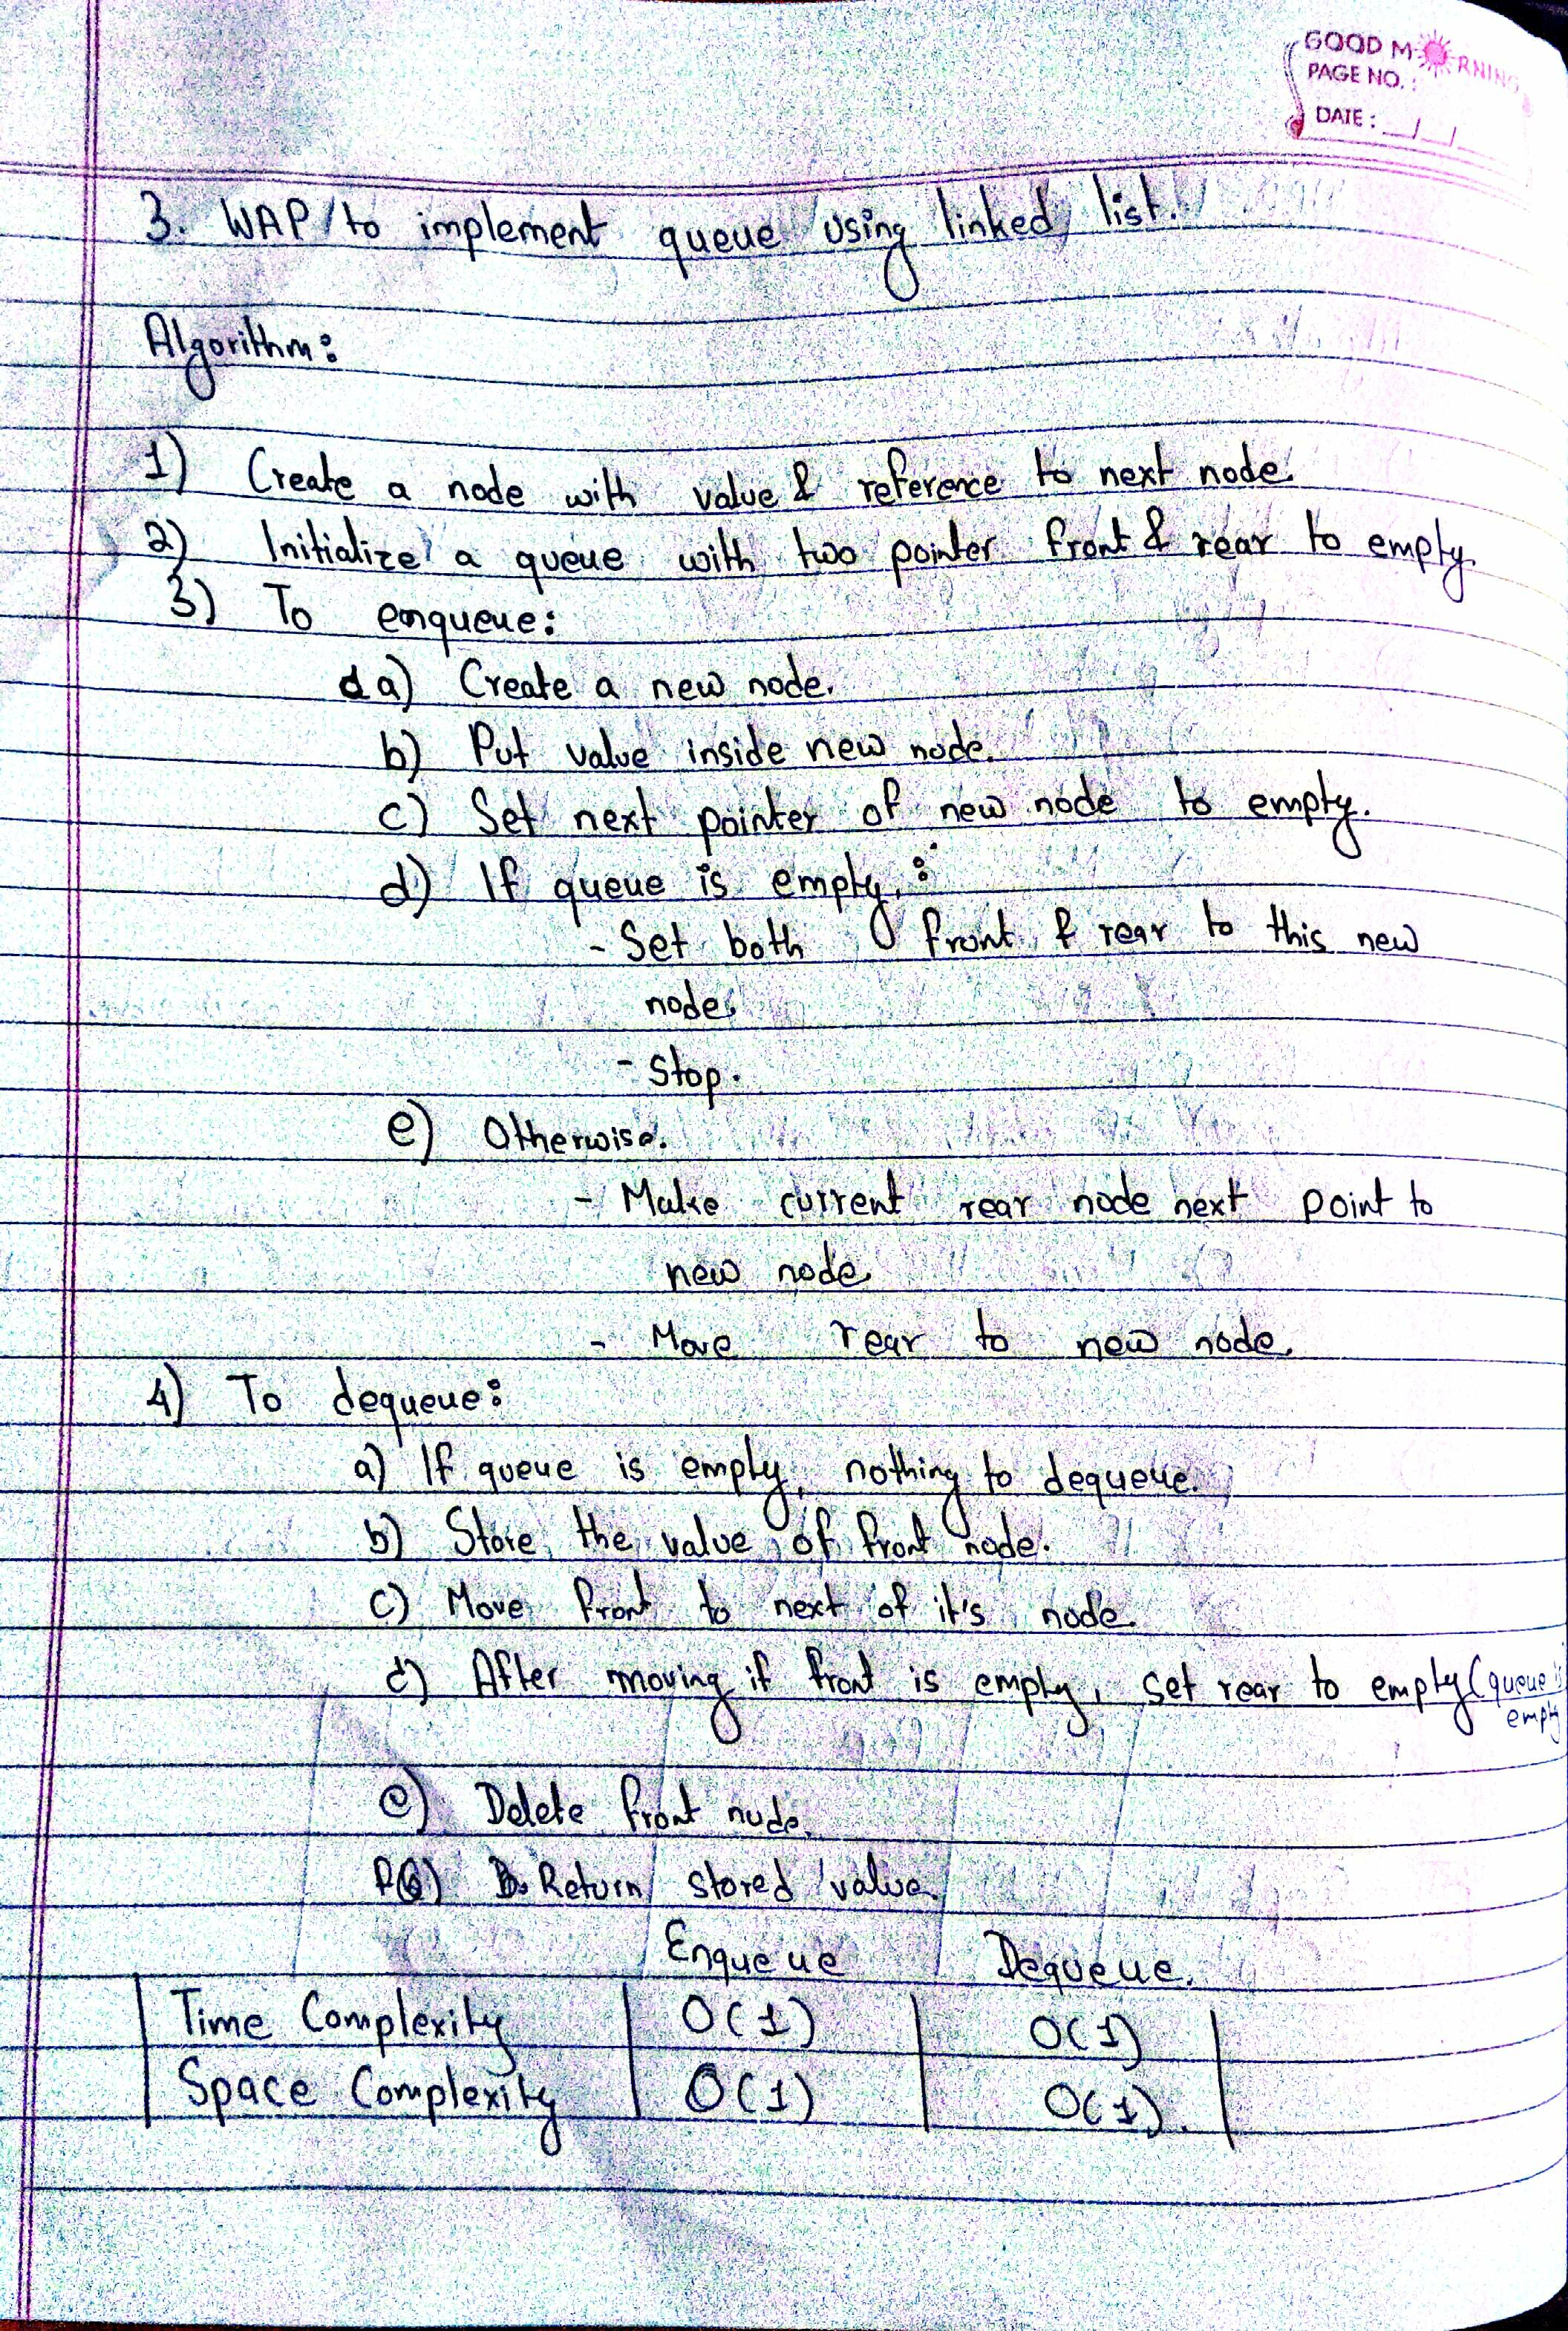 GOOD MORNING
PAGE NO. :
DATE : __/__/__
3. WAP to implement queue using linked list.
Algorithm:
1) Create a node with value & reference to next node.
2) Initialize a queue with two pointer front & rear to empty.
3) To enqueue:
a) Create a new node.
b) Put value inside new node.
c) Set next pointer of new node to empty.
d) If queue is empty, :
- Set both front & rear to this new
node.
- Stop.
e) Otherwise.
- Make current rear node next point to
new node.
- Move rear to new node.
4) To dequeue:
a) If queue is empty, nothing to dequeue.
b) Store the value of front node.
c) Move front to next of it's node.
d) After moving if front is empty, set rear to empty (queue is
empty
e) Delete front node.
f) Return stored value.
Enqueue Dequeue.
Time Complexity O(1) O(1)
Space Complexity O(1) O(1).